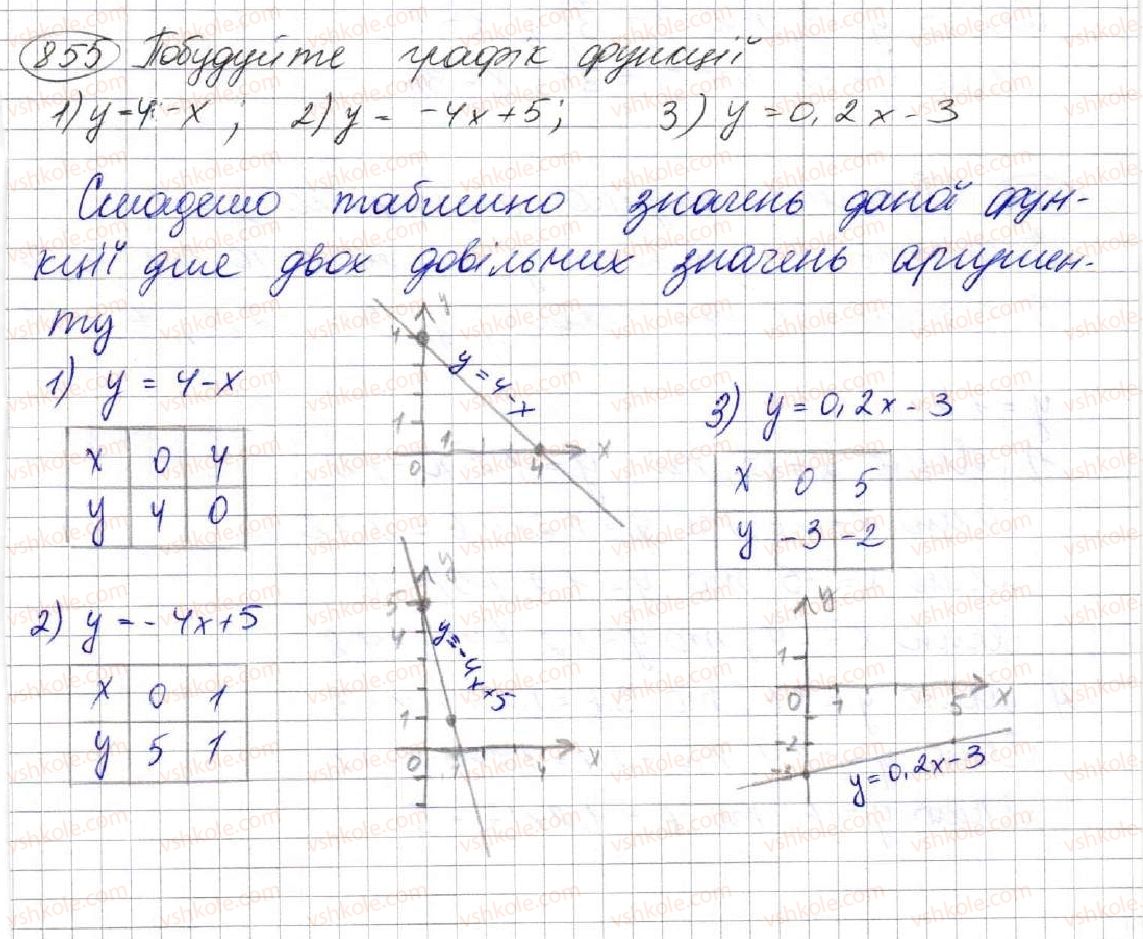 855 Побудуйте графік функції
1) y=4-x; 2) y = -4x+5; 3) y=0,2x-3
Складемо таблицю значень даної фун-
кції для двох довільних значень аргумен-
ту
1) y = 4-x
x 0 4
y 4 0
y
4
y=4-x
1
0 1 4 x
2) y=-4x+5
x 0 1
y 5 1
y
5
4
y=-4x+5
1
0 1 4 x
3) y=0,2x-3
x 0 5
y -3 -2
y
1
0 1 5 x
-2
-3
y=0,2x-3
vshkole.com